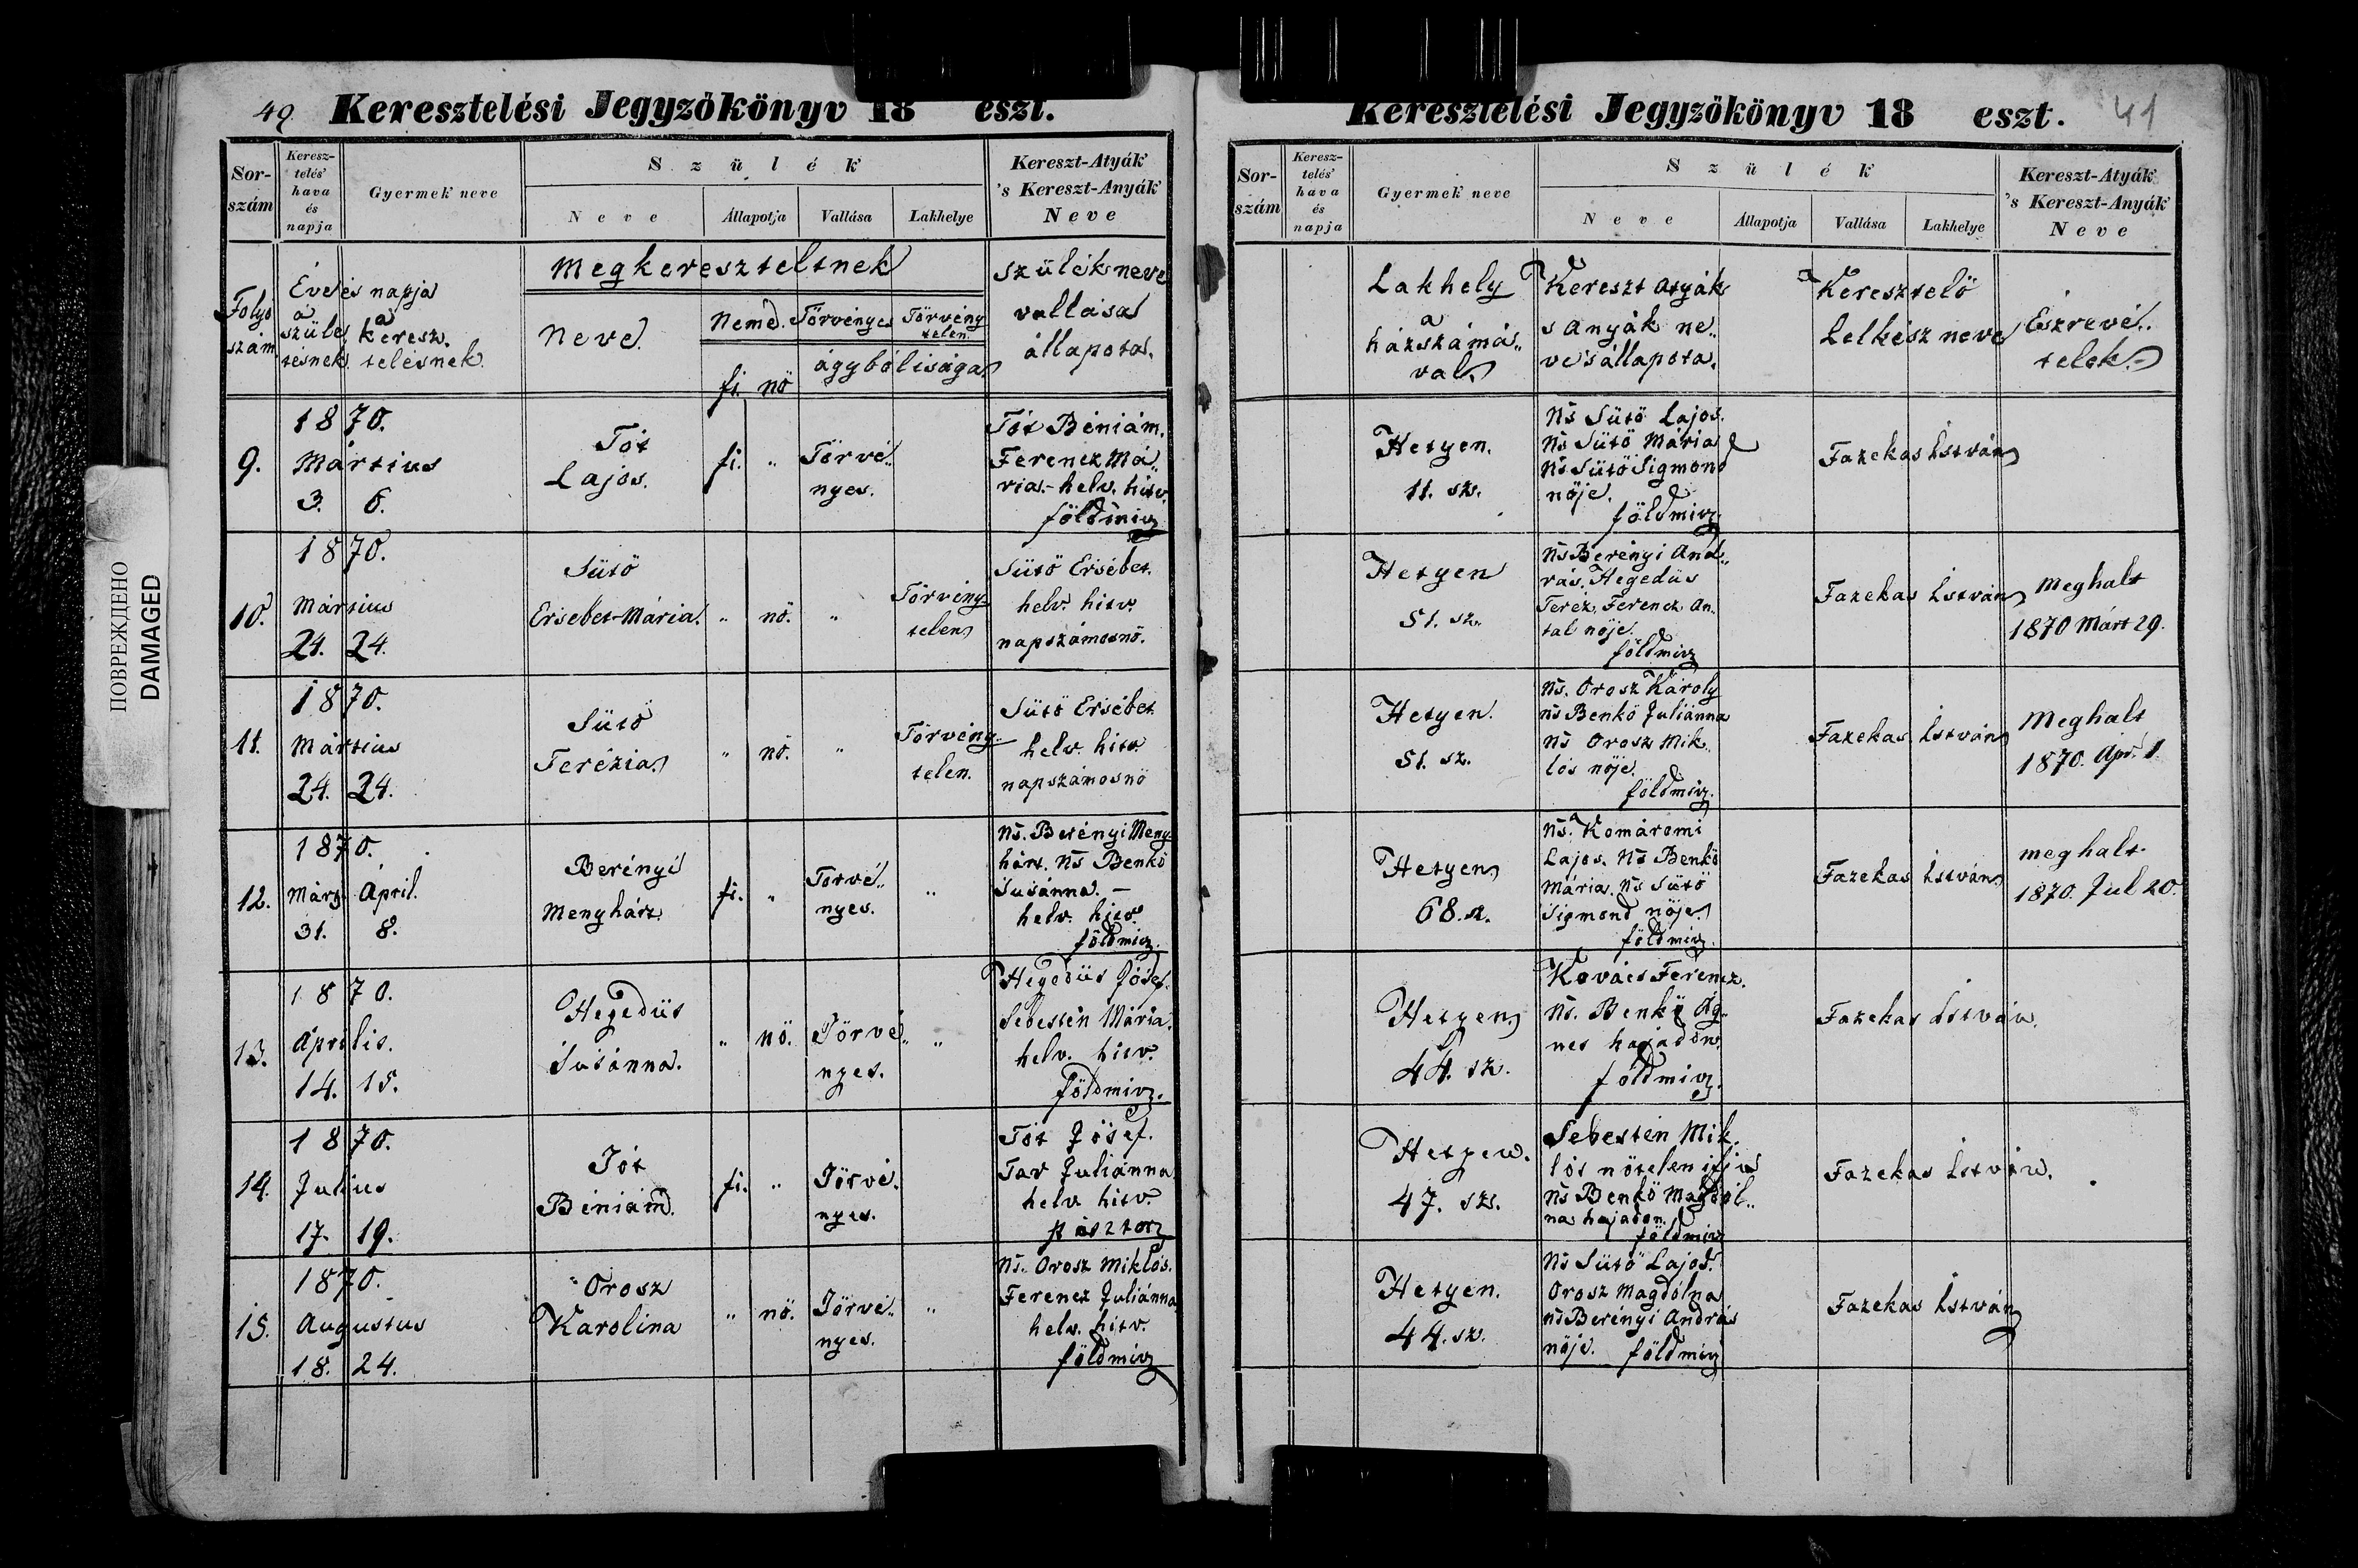 49 Keresztelési Jegyzőkönyv 18 eszt.
Sor-
szám
Keresz-
telés'
hava
és
napja
Gyermek neve
Szülék
Neve
Állapotja
Vallása
Lakhelye
Kereszt-Atyák
's Kereszt-Anyák
Neve
Folyó
szám
Éve és napja
a
szüle
tésnek
a
keresz.
telésnek.
Megkereszteltnek
Neve.
Neme.
fi. nő
Törvényes
Törvény
telen.
ágybólisága
Szülék neve
vallása
állapota.
9.
1870.
Mártius
3. 6.
Tót
Lajos.
fi. „
Törvé„
nyes.
Tót Béniám.
Ferencz Má„
ria.- helv. hitv.
földmiv
10.
1870.
Mártius
24. 24.
Sütő
Ersébet-Mária.
„ nő. „
Törvény
telen
Sütő Ersébet.
helv. hitv.
napszámosnő.
11.
1870.
Mártius
24. 24.
Sütő
Terézia.
„ nő. „
Törvény„
telen.
Sütő Ersébet.
helv. hitv.
napszámosnő
12.
1870.
Márt. April.
31. 8.
Berényi
Menyhárt.
fi. „
Törvé„
nyes.
„
Ns. Berényi Meny
hárt. Ns Benkő
Susánna. –
helv. hitv.
földmiv.
13.
1870.
Április.
14. 15.
Hegedüs
Susánna.
„ nő.
Törvé„
nyes.
„
Hegedüs Jósef.
Sebestén Mária.
helv. hitv.
földmiv.
14.
1870.
Julius
17. 19.
Tót
Béniám.
fi. „
Törvé.
nyes.
Tót Jósef.
Tar Juliánna
helv. hitv.
pásztor
15.
1870.
Augustus
18. 24.
Orosz
Karolina
„ nő.
Törvé„
nyes.
„
Ns. Orosz Miklós.
Ferencz Juliánna
helv. hitv.
földmiv
Keresztelési Jegyzőkönyv 18 eszt. 41
Sor-
szám
Keresz-
telés'
hava
és
napja
Gyermek neve
Szülék
Neve
Állapotja
Vallása
Lakhelye
Kereszt-Atyák
's Kereszt-Anyák
Neve
Lakhely
a
házszámá„
val.
Kereszt atyák
s anyák ne„
ve s állapota.
Keresztelő
Lelkész neve
Észrevé„
telek.
Hetyen.
11. sz.
Ns Sütő Lajos.
Ns Sütő Mária
Ns Sütő Sigmond
nője.
földmiv.
Fazekas István
Hetyen
51. sz.
Ns Berényi And„
rás. Hegedüs
Teréz, Ferencz An„
tal nője.
földmiv
Fazekas István
Meghalt
1870 Márt 29.
Hetyen.
51. sz.
Ns. Orosz Károly
ns Benkő Juliánna
Ns Orosz Mik„
lós nője.
földmiv.
Fazekas István
Meghalt
1870. Apr. 1.
Hetyen
68. sz.
Ns. Komáromi
Lajos. Ns Benkő
Mária. Ns Sütő
Sigmond nője.
földmiv.
Fazekas István
meghalt.
1870. Jul 20.
Hetyen
44. sz.
Kovács Ferencz.
Ns. Benkő Ág„
nes hajadon.
földmiv.
Fazekas István.
Hetyen.
47. sz.
Sebestén Mik„
lós nőtelen ifju
Ns Benkő Magdol„
na hajadon.
földmiv
Fazekas István.
Hetyen.
44. sz.
Ns Sütő Lajos.
Orosz Magdolna
ns Berényi András
nője. földmiv
Fazekas István
ПОВРЕЖДЕНО
DAMAGED